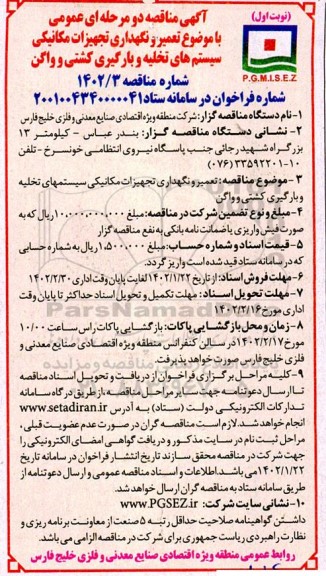 (نوبت اول)
آگهی مناقصه دو مرحله ای عمومی
با موضوع تعمیر و نگهداری تجهیزات مکانیکی
سیستم های تخلیه و بارگیری کشتی و واگن
P.G.M.I.S.E.Z
شماره مناقصه ۱۴۰۲/۳
شماره فراخوان در سامانه ستاد ۲۰۰۱۰۰۴۳۴۰۰۰۰۰۴۱
۱-نام دستگاه مناقصه گزار: شرکت منطقه ویژه اقتصادی صنایع معدنی و فلزی خلیج فارس
۲- نشانی دستگاه مناقصه گزار: بندر عباس - کیلومتر ۱۳
بزرگراه شهید رجائی جنب پاسگاه نیروی انتظامی خونسرخ -تلفن
۱۰-۳۳۵۹۲۲۰۱ (۰۷۶)
۳- موضوع مناقصه: تعمیر و نگهداری تجهیزات مکانیکی سیستمهای تخلیه
و بارگیری کشتی و واگن
۴-مبلغ و نوع تضمین شرکت در مناقصه: مبلغ ۱۰،۰۰۰،۰۰۰،۰۰۰ ریال که به
صورت فیش واریزی یا ضمانت نامه بانکی به نفع مناقصه گزار
۵- قیمت اسناد و شماره حساب: مبلغ ۱،۵۰۰،۰۰۰ ریال به شماره حسابی
که در سامانه ستاد قید شده است واریز گردد.
۶- مهلت فروش اسناد: از تاریخ ۱۴۰۲/۱/۲۲ لغایت پایان وقت اداری ۱۴۰۲/۲/۳۰
۷- مهلت تحویل اسناد: مهلت تکمیل و تحویل اسناد حداکثر تا پایان وقت
اداری مورخ ۱۴۰۲/۲/۱۶
۸-زمان و محل بازگشایی پاکات: بازگشایی پاکات راس ساعت ۱۰/۰۰
مورخ ۱۴۰۲/۲/۱۷ در سالن کنفرانس منطقه ویژه اقتصادی صنایع معدنی و
فلزی خلیج فارس صورت خواهد پذیرفت.
۹-کلیه مراحل برگزاری فراخوان از دریافت و تحویل اسناد مناقصه
تا ارسال دعوتنامه جهت سایر مراحل مناقصه، از طریق درگاه سامانه
تدارکات الکترونیکی دولت (ستاد) به آدرس www.setadiran.ir
انجام خواهد شد. لازم است مناقصه گران در صورت عدم عضویت قبلی،
مراحل ثبت نام در سایت مذکور و دریافت گواهی امضای الکترونیکی را
جهت شرکت در مناقصه محقق سازند تاریخ انتشار فراخوان در سامانه تاریخ
۱۴۰۲/۱/۲۲ می باشد. اطلاعات و اسناد مناقصه عمومی و ارسال دعوتنامه از
طریق سامانه ستاد به مناقصه گران ارسال خواهد شد.
۱۰-نشانی سایت شرکت: www.PGSEZ.ir
داشتن گواهینامه صلاحیت حداقل رتبه ۵ صنعت از معاونت برنامه ریزی و
نظارت راهبردی ریاست جمهوری برای شرکت در مناقصه الزامی می باشد.
روابط عمومی منطقه ویژه اقتصادی صنایع معدنی و فلزی خلیج فارس